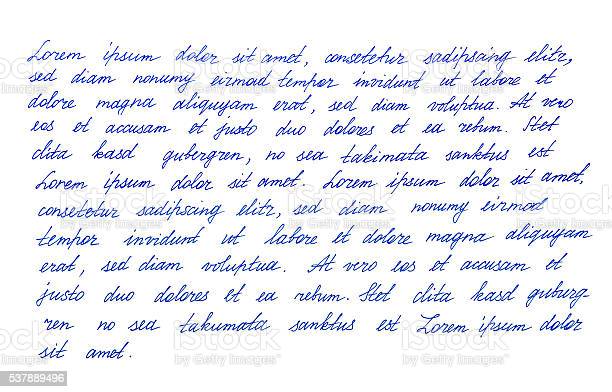 Lorem ipsum dolor sit amet, consetetur sadipscing elitr,
sed diam nonumy eirmod tempor invidunt ut labore et
dolore magna aliquyam erat, sed diam voluptua. At vero
eos et accusam et justo duo dolores et ea rebum. Stet
clita kasd gubergren, no sea takimata sanktus est
Lorem ipsum dolor sit amet. Lorem ipsum dolor sit amet,
consetetur sadipscing elitr, sed diam nonumy eirmod
tempor invidunt ut labore et dolore magna aliquyam
erat, sed diam voluptua. At vero eos et accusam et
justo duo dolores et ea rebum. Stet clita kasd guburg-
ren no sea takumata sanktus est Lorem ipsum dolor
sit amet.
iStock
by Getty Images
537889496